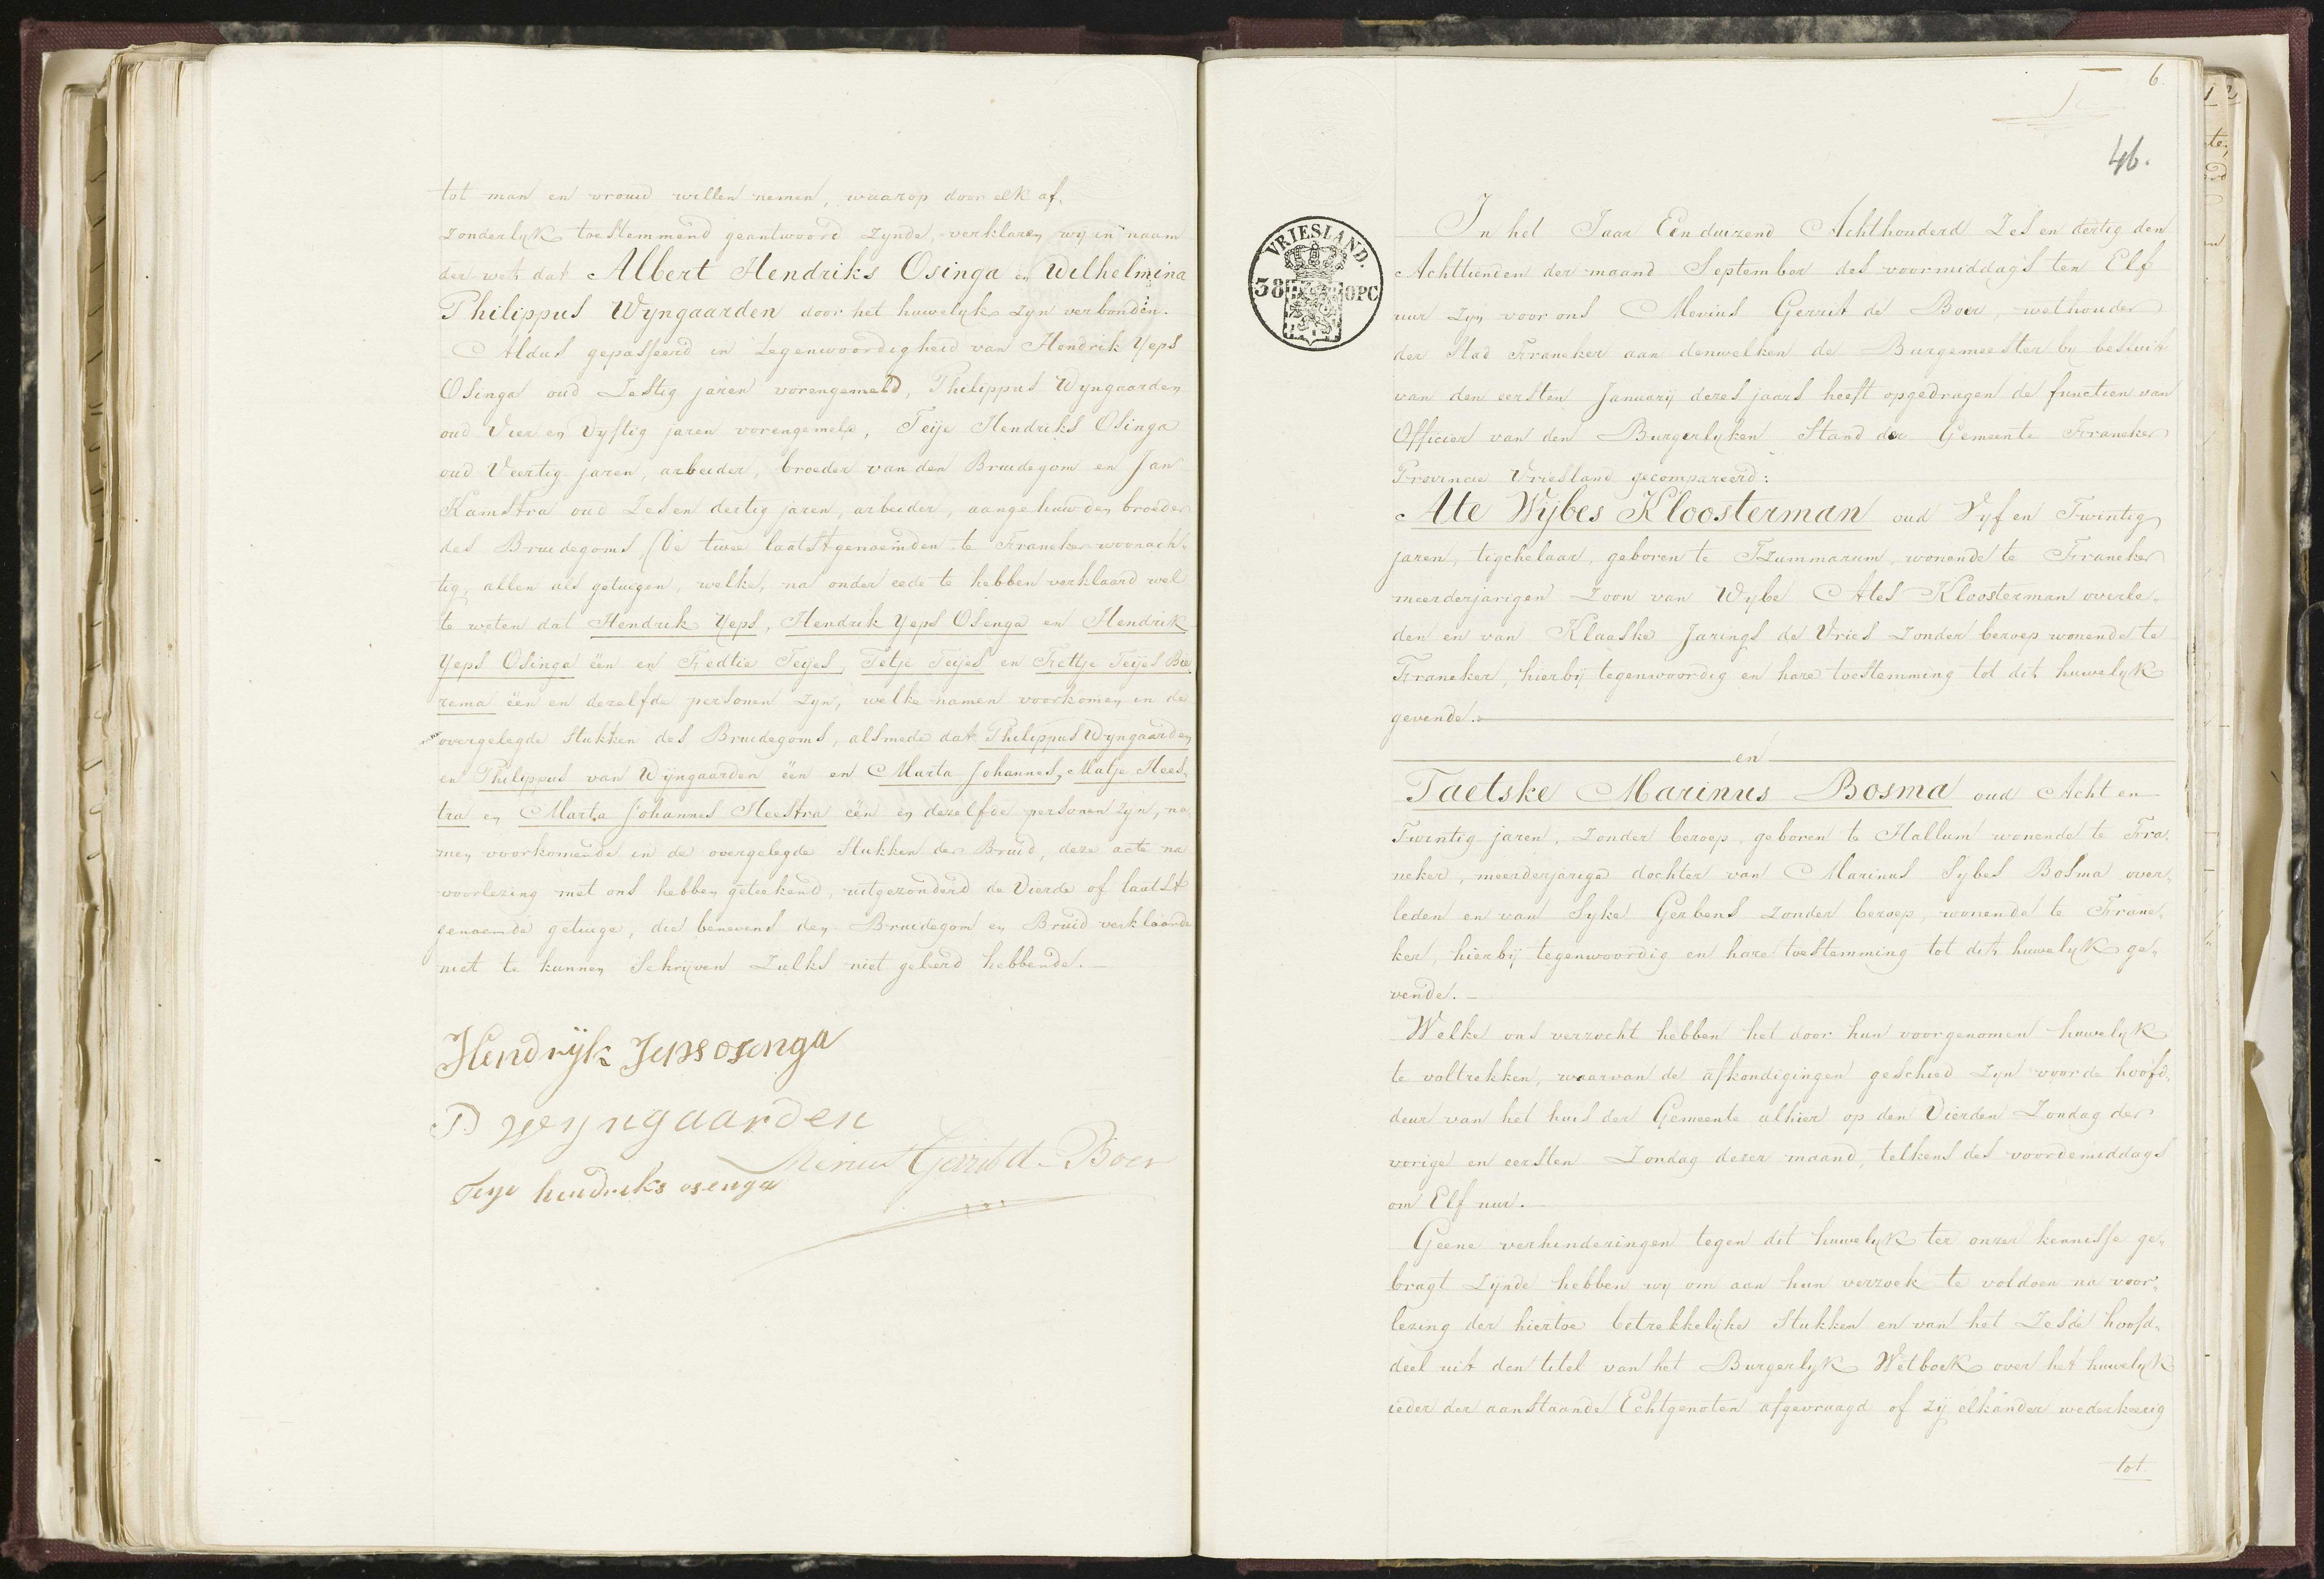 tot man en vrouw willen nemen, waarop door elk af,
zonderlyk toestemmend geantwoord zynde, verklaren wy in naam
der wet, dat Albert Hendriks Osinga en Wilhelmina
Philippus Wyngaarden door het huwelyk zyn verbonden.
Aldus gepasseerd in tegenwoordigheid van Hendrik Yeps
Osinga oud Zestig jaren vorengemeld, Philippus Wyngaarden
oud Vier en Vyftig jaren vorengemeld, Teije Hendriks Osinga
oud Veertig jaren, arbeider, broeder van den Bruidegom en Jan
Kamstra oud Zes en dertig jaren, arbeider, aangehuwden broeder
des Bruidegoms, De twee laatstgenoemden te Franeker woonach,
tig, allen als getuigen, welke, na onder eede te hebben verklaard wel
te weten dat Hendrik Yeps, Hendrik Yeps Osenga en Hendrik
Yeps Osinga één en Fredtie Teijes, Tetje Teijes en Trettje Teijes Bie
rema één en dezelfde personen zyn, welke namen voorkomen in de
overgelegde stukken des Bruidegoms, alsmede dat Philippus Wyngaarden
en Philippus van Wijngaarden één en Marta Johannes, Matje Hees,
tra en Marta Johannes Heestra één en dezelfde personen zyn, na,
men voorkomende in de overgelegde stukken der Bruid, deze acte na
voorlezing met ons hebben geteekend, uitgezonderd de Vierde of laatst
genoemde getuige, die benevens den Bruidegom en Bruid verklaarde
niet te kunnen Schrijven Zulks niet geleerd hebbende.
Hendrijk Jepsosenga
P weyngaarden
Menius Gerrit d Boer
Teye hendreks osenga
6.
46.
VRIESLAND.
38 OPC
In het Jaar Een duizend Achthonderd Zes en dertig den
Achttienden der maand September des voormiddags ten Elf
uur Zyn voor ons Menius Gerrit de Boer wethouder
der Stad Franeker aan denwelken de Burgemeester by besluit
van den eersten Januarij dezes jaars heeft opgedragen de functien van
Officier van den Burgerlyken Stand der Gemeente Franeker
Provincie Vriesland gecompareerd:
Ate Wijbes Kloosterman oud Vyf en Twintig
jaren, tigchelaar, geboren te Tzummarum, wonende te Franeker
meerderjarigen Zoon van Wybe Ates Kloosterman overle,
den en van Klaaske Jarings de Vries zonder beroep wonende te
Franeker, hierbij tegenwoordig en hare toestemming tot dit huwelyk
gevende.
en
Taetske Marinus Bosma oud Acht en
Twintig jaren, zonder beroep, geboren te Hallum wonende te Fra,
neker, meerderjarige dochter van Marinus Sybes Bosma over,
leden en van Syke Gerbens zonder beroep, wonende te Frane,
ker, hierbij tegenwoordig en hare toestemming tot dit huwelyk ge,
vende.
Welke ons verzocht hebben het door hun voorgenomen huwelyk
te voltrekken, waarvan de afkondigingen geschied zyn voor de hoofd,
deur van het huis der Gemeente alhier op den Vierden Zondag der
vorige en eersten Zondag dezer maand, telkens des voordemiddags
om Elf uur.
Geene verhinderingen tegen dit huwelyk ter onzer kennisse ge,
bragt zijnde hebben wy om aan hun verzoek te voldoen na voor,
lezing der hiertoe betrekkelijke Stukken en van het Zesde hoofd,
deel uit den titel van het Burgerlyk Wetboek over het huwelyk
ieder der aanstaande Echtgenoten afgevraagd of zij elkander wederkeerig
tot.